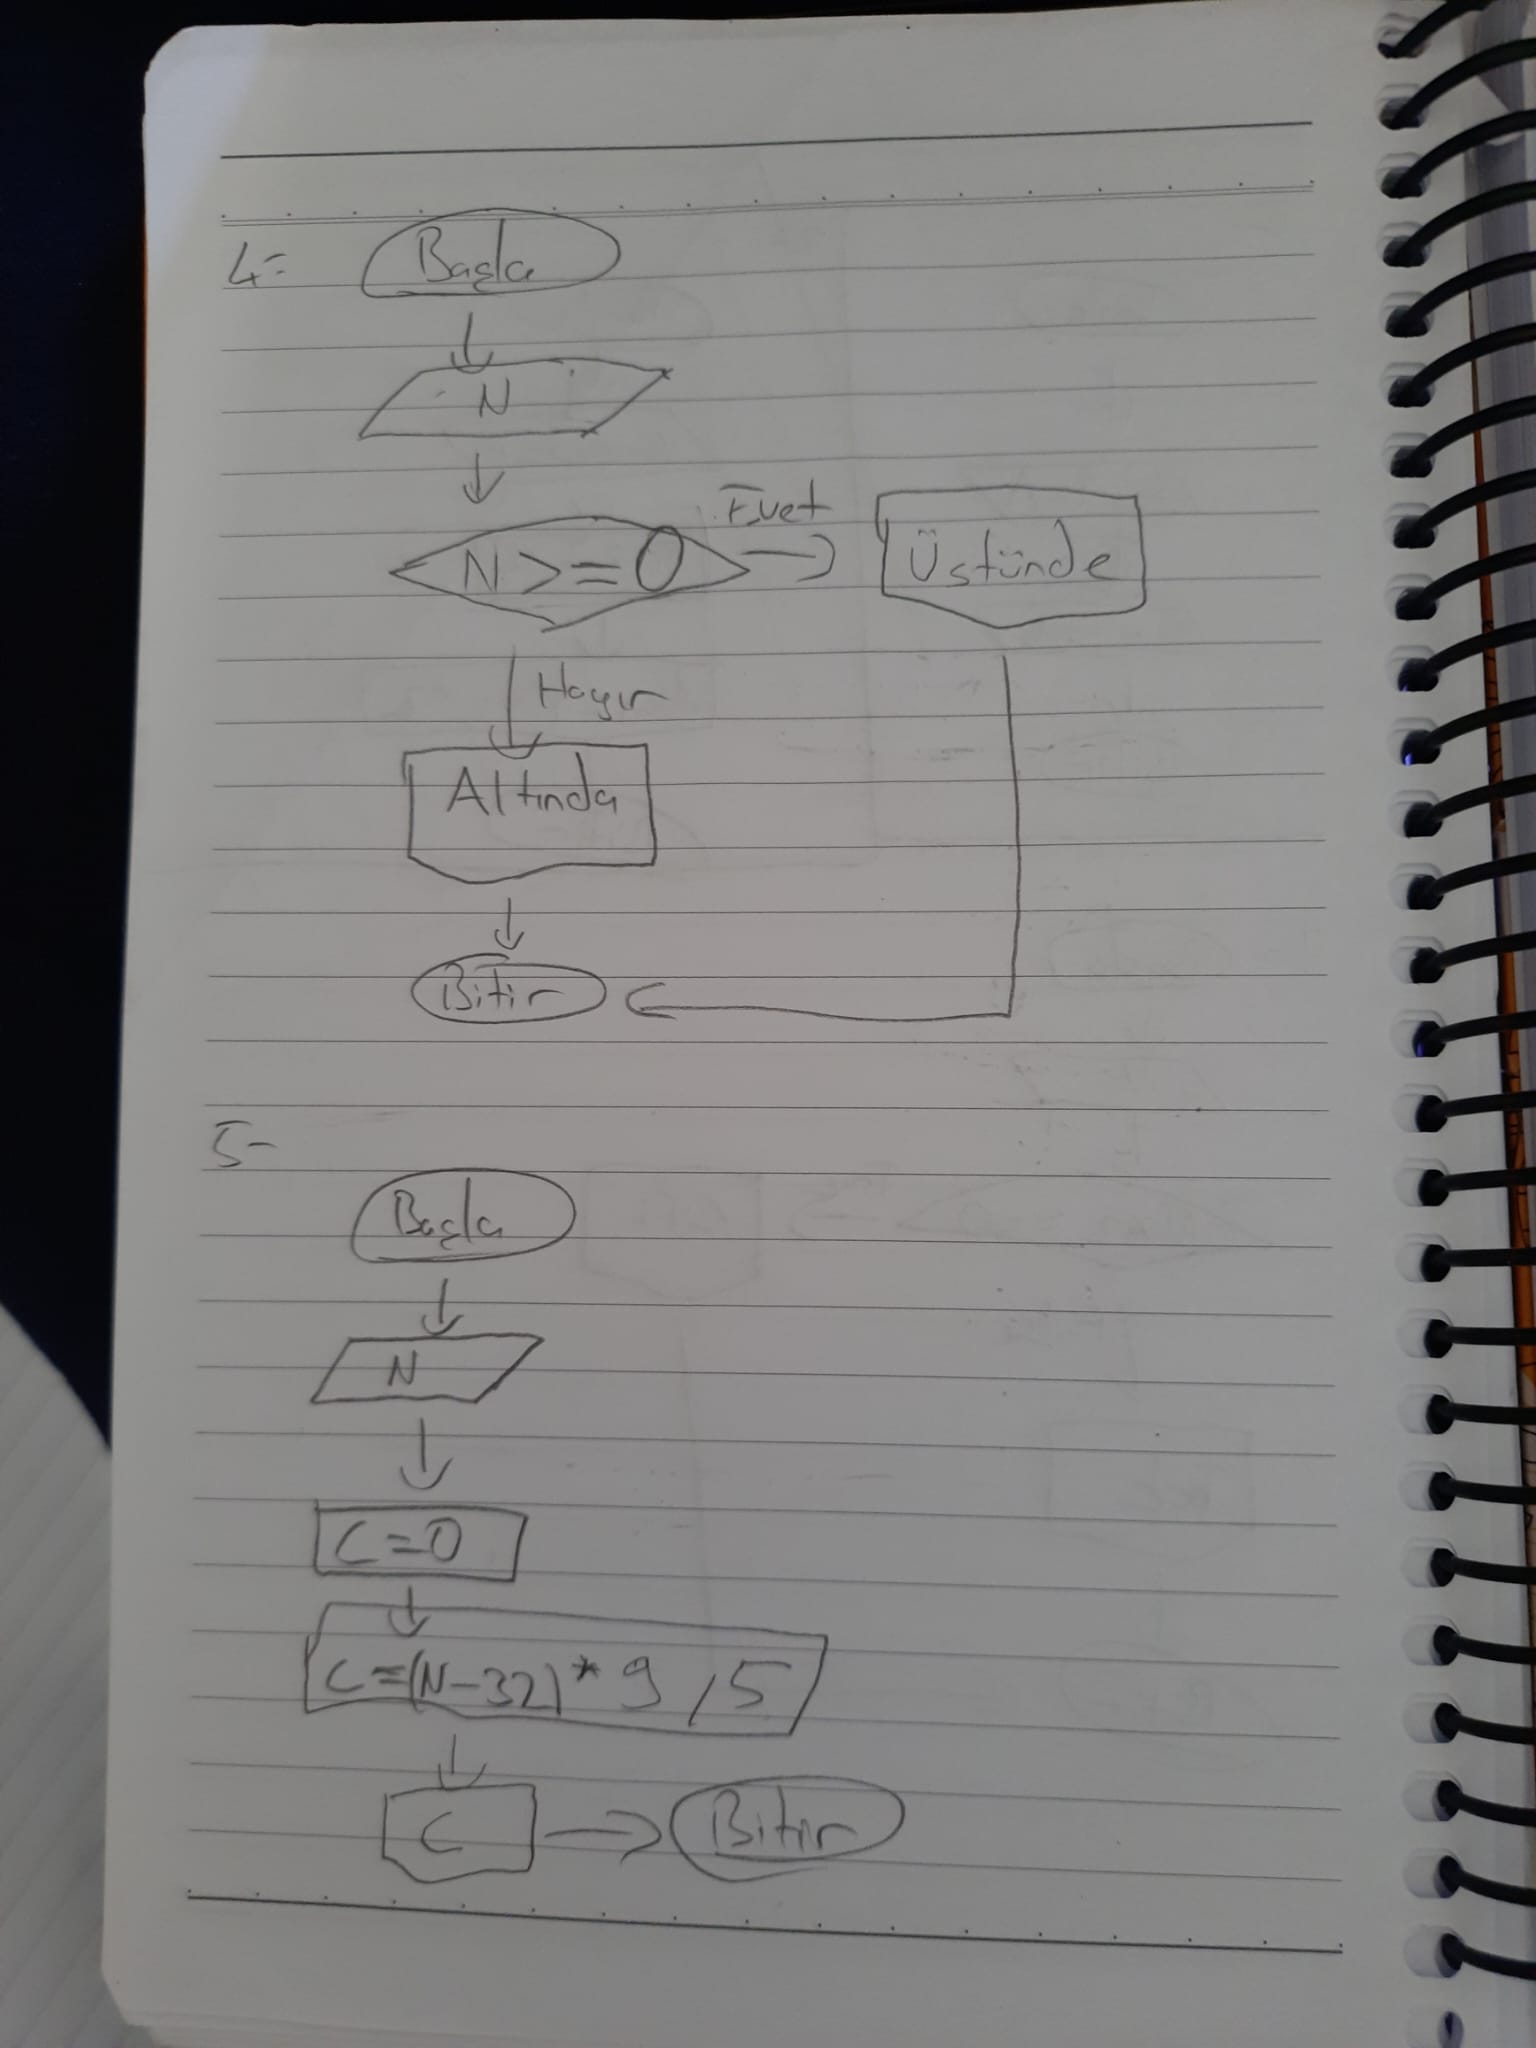 4-
Başla
N
N >= 0
Evet
Üstünde
Hayır
Altında
Bitir
5-
Başla
N
C=0
C=(N-32)* 9 /5
C
Bitir